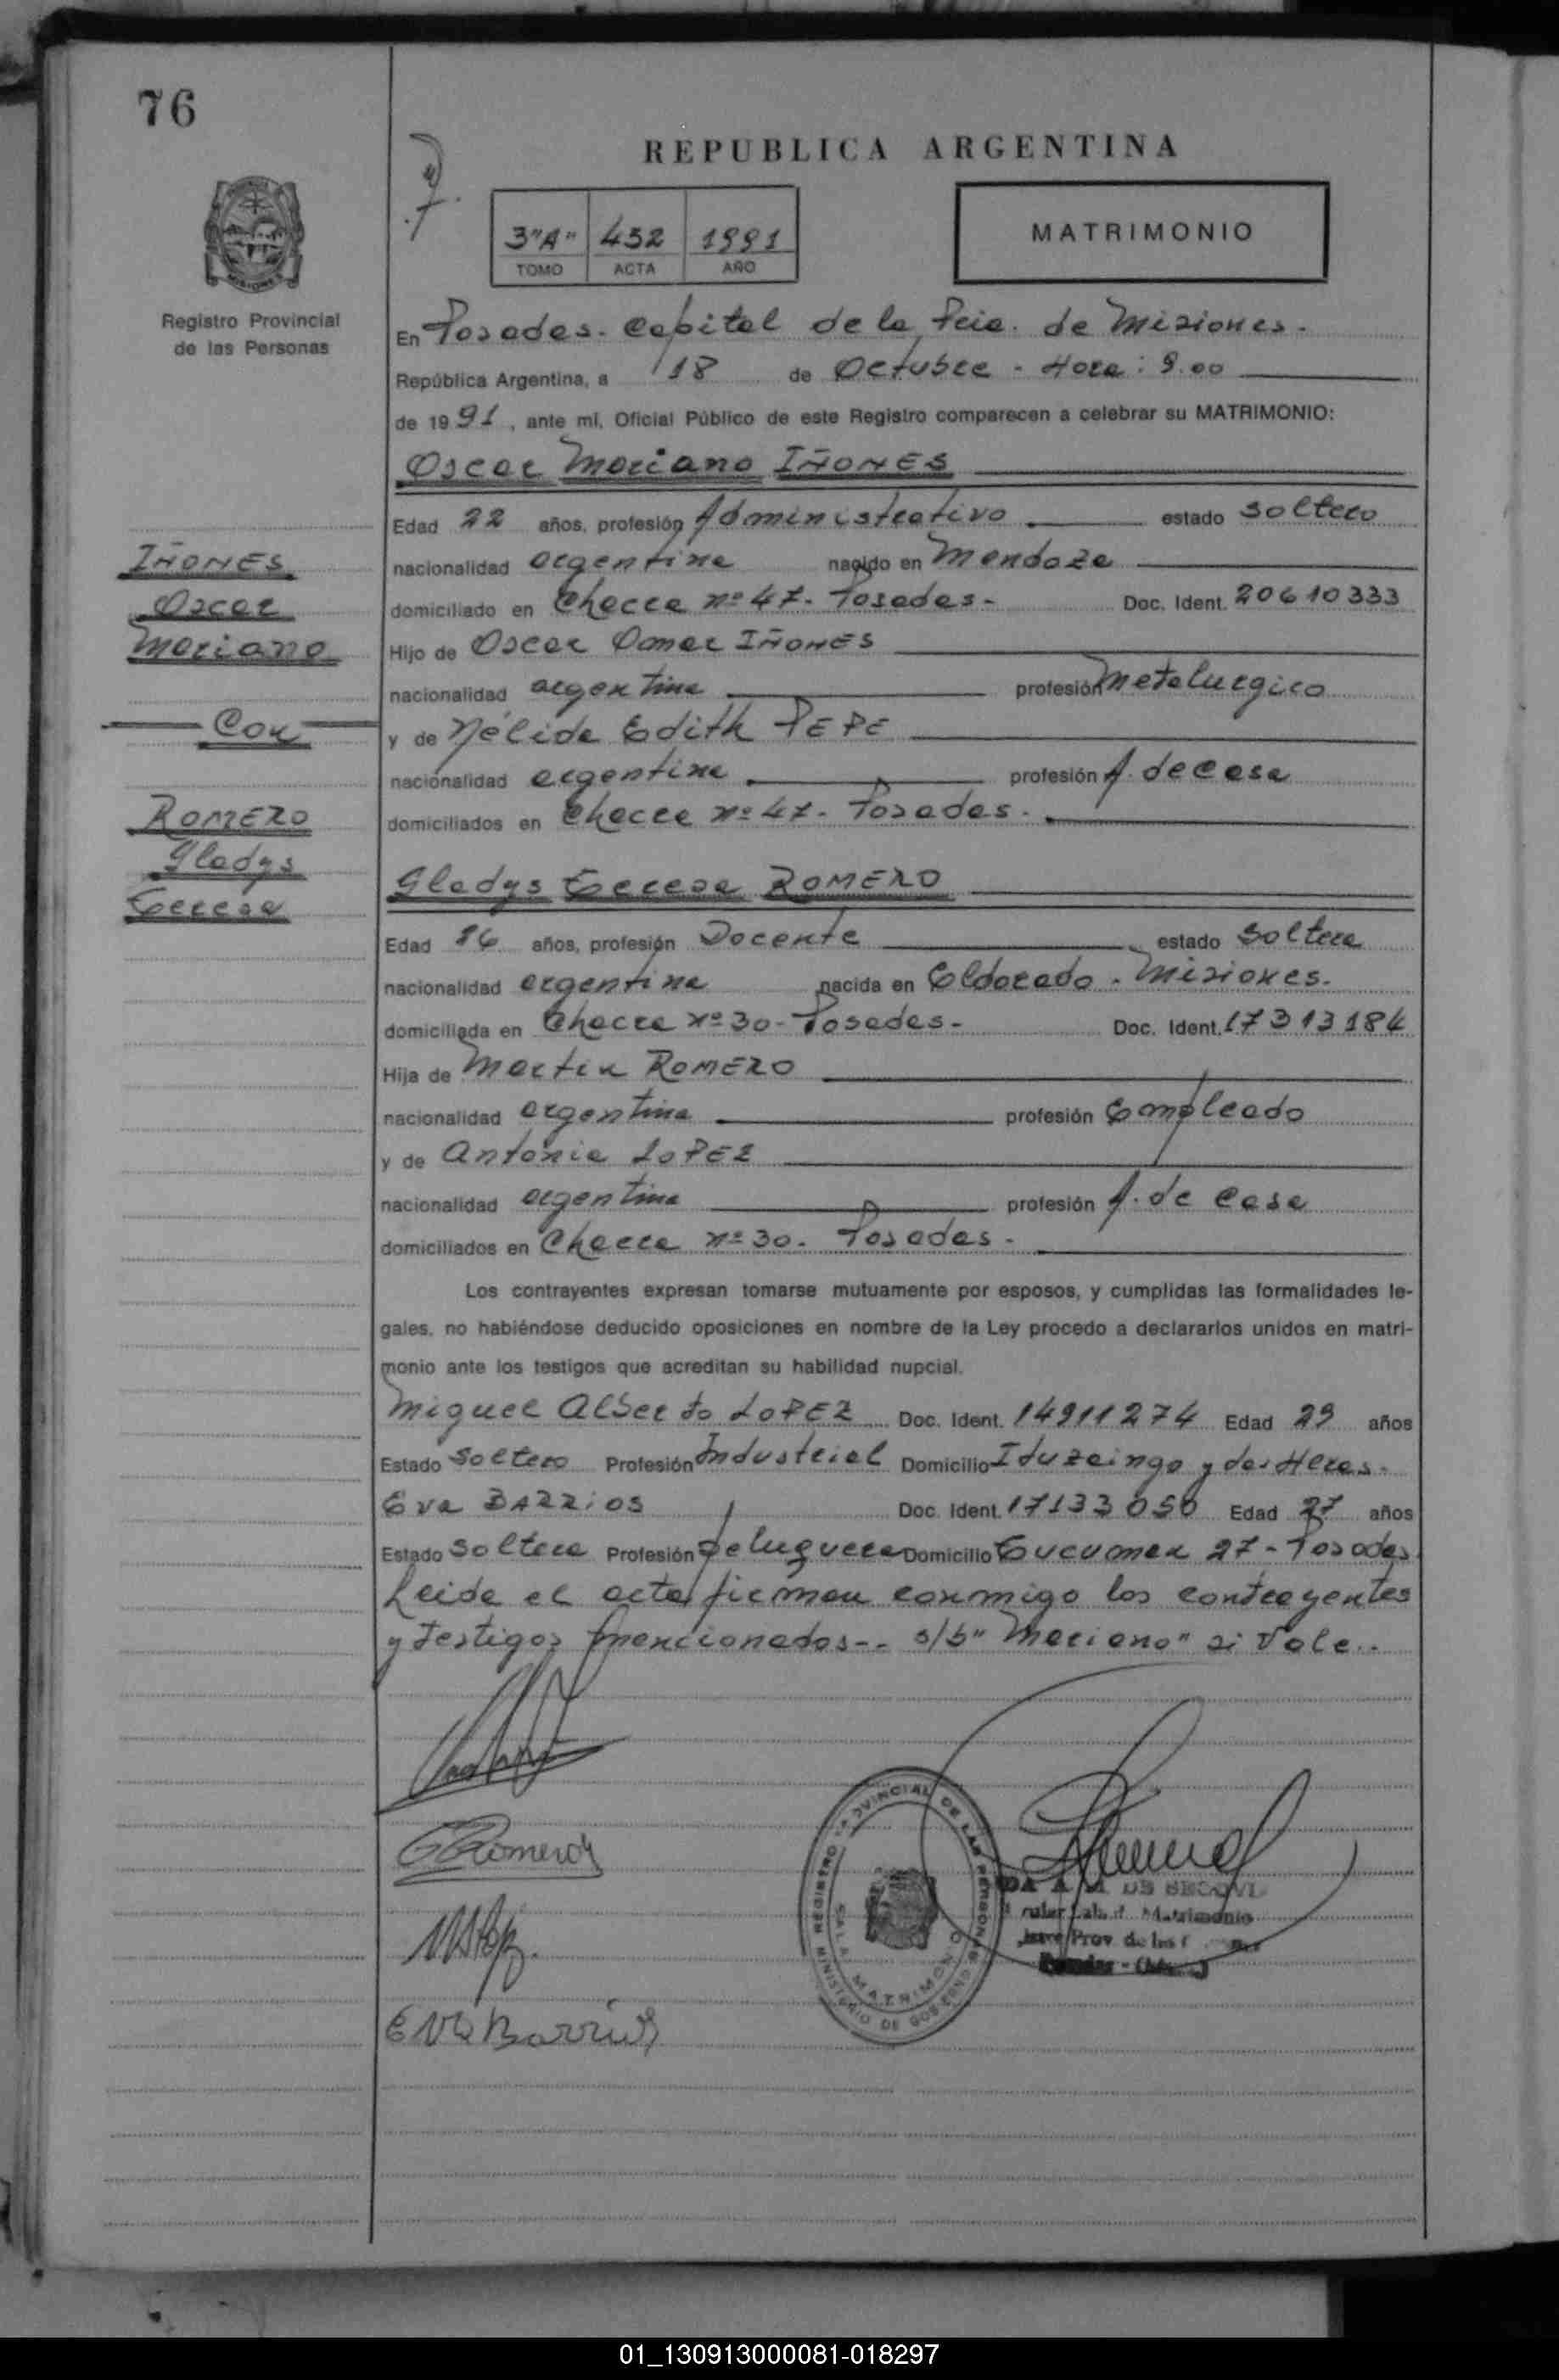 76
REPUBLICA ARGENTINA
3"A" 432 1991
TOMO ACTA AÑO
MATRIMONIO
Registro Provincial
de las Personas
En Posadas. Capital de la Pcia. de Misiones.
República Argentina, a 18 de Octubre - Hora: 9.00
de 1991, ante mí, Oficial Público de este Registro comparecen a celebrar su MATRIMONIO:
Oscar Mariano IÑONES
Edad 22 años, profesión Administrativo estado soltero
nacionalidad argentina nacido en Mendoza
domiciliado en Chacra nº 47. Posadas- Doc. Ident. 20610333
Hijo de Oscar Omar IÑONES
nacionalidad argentina profesión Metalurgico
y de Nélida Edith PEPE
nacionalidad argentina profesión A. de casa
domiciliados en Chacra nº 47. Posadas.
IÑONES
Oscar
Mariano
Con
ROMERO
Gladys
Teresa
Gladys Teresa ROMERO
Edad 26 años, profesión Docente estado soltera
nacionalidad argentina nacida en Eldorado. Misiones.
domiciliada en Chacra nº 30- Posadas- Doc. Ident. 17313184
Hija de Martin ROMERO
nacionalidad argentina profesión Empleado
y de Antonia LOPEZ
nacionalidad argentina profesión A. de casa
domiciliados en Chacra nº 30. Posadas-
Los contrayentes expresan tomarse mutuamente por esposos, y cumplidas las formalidades le-
gales, no habiéndose deducido oposiciones en nombre de la Ley procedo a declararlos unidos en matri-
monio ante los testigos que acreditan su habilidad nupcial.
Miguel Alberto LOPEZ Doc. Ident. 14911274 Edad 29 años
Estado soltero Profesión Industrial Domicilio Ituzaingo y das Heras-
Eva BARRiOS Doc. Ident. 17133050 Edad 27 años
Estado soltera Profesión Peluquera Domicilio Tucuman 27 - Posadas
Leida el acta firman conmigo los contrayentes
y testigos mencionados-- s/b "Mariano" si Vale..
GRomero
MALopez.
Eva Barrios
REGISTRO PROVINCIAL DE LAS PERSONAS
SALA MATRIMONIO
MINISTERIO DE GOBIERNO
DE SEGOVI
Matrimonio
Prov. de las
01_130913000081-018297